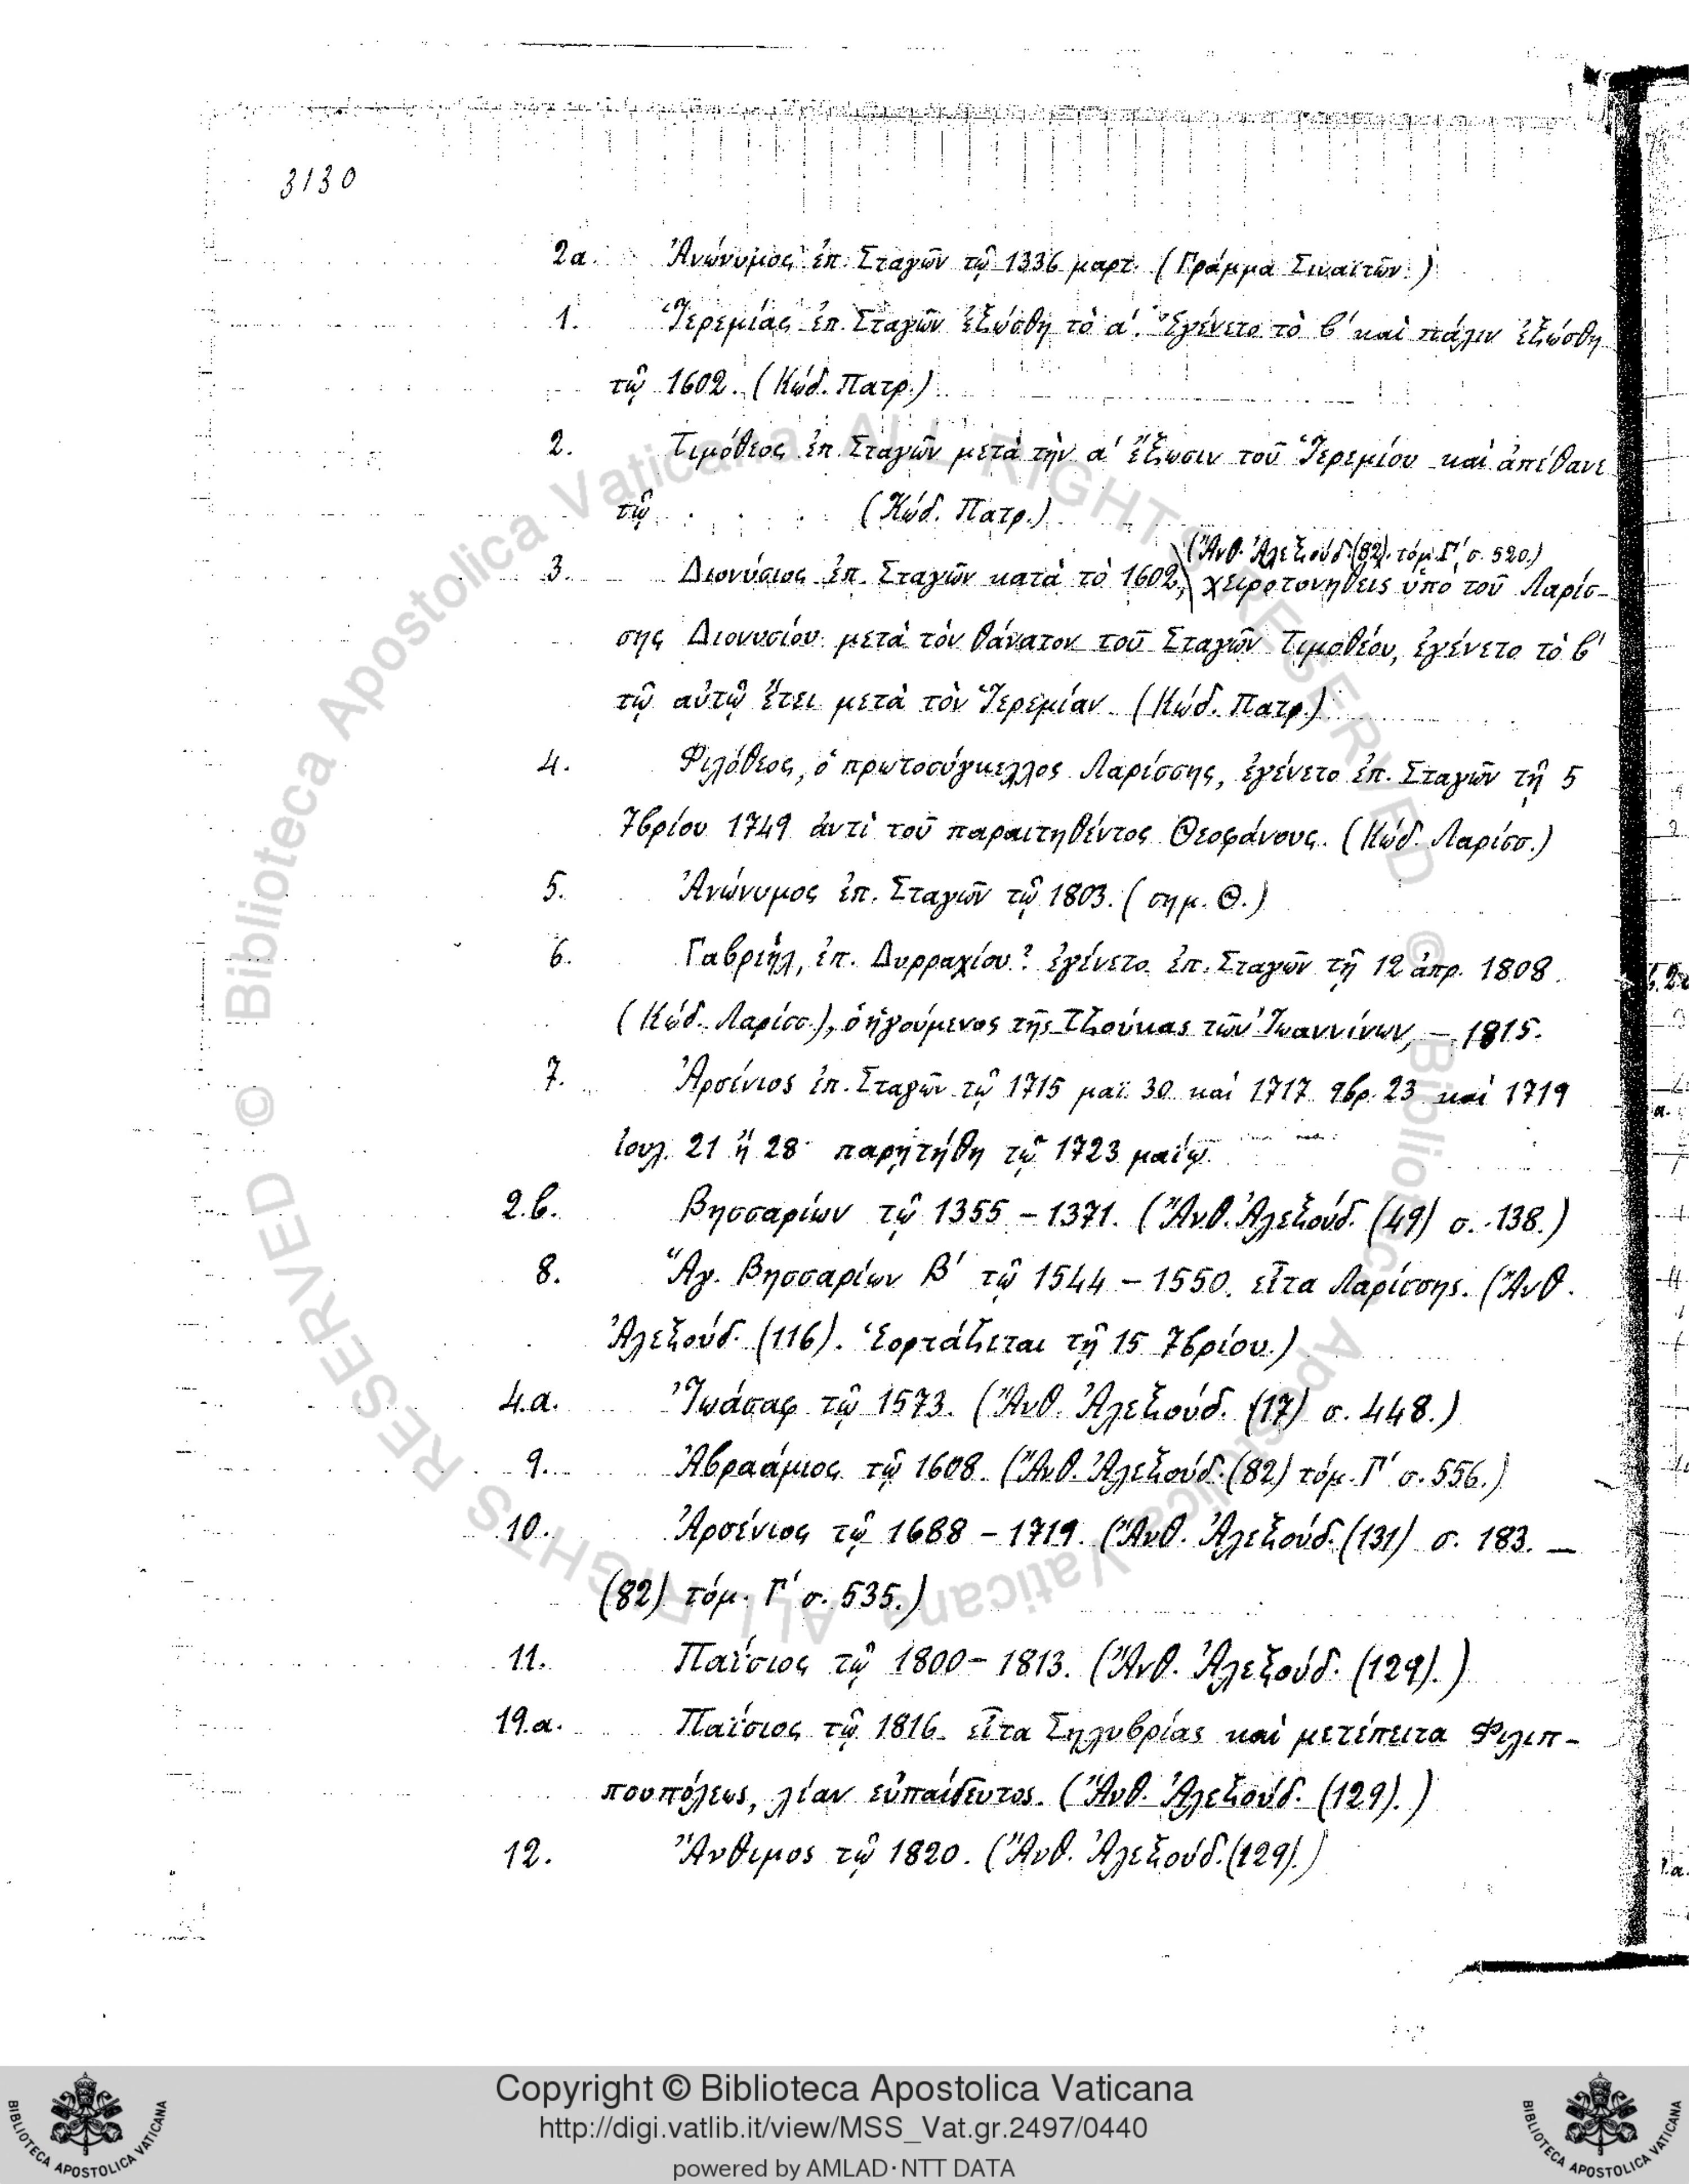 3130
2α. Ἀνώνυμος ἐπ. Σταγῶν τῷ 1336 μαρτ. (Γράμμα Σιναϊτῶν.)
1. Ἱερεμίας ἐπ. Σταγῶν ἐξώσθη τὸ α΄. Ἐγένετο τὸ β΄ καὶ πάλιν ἐξώσθη
τῷ 1602. (Κώδ. Πατρ.)
2. Τιμόθεος ἐπ. Σταγῶν μετὰ τὴν α΄ ἔξωσιν τοῦ Ἱερεμίου καὶ ἀπέθανε
τῷ . . . . (Κώδ. Πατρ.)
(Ἄνθ. Ἀλεξούδ. (82). τόμ. Γ΄ σ. 520.)
3. Διονύσιος ἐπ. Σταγῶν κατὰ τὸ 1602, χειροτονηθεὶς ὑπὸ τοῦ Λαρίσ-
σης Διονυσίου μετὰ τὸν θάνατον τοῦ Σταγῶν Τιμοθέου, ἐγένετο τὸ β΄
τῷ αὐτῷ ἔτει μετὰ τὸν Ἱερεμίαν. (Κώδ. Πατρ.)
4. Φιλόθεος, ὁ πρωτοσύγκελλος Λαρίσσης, ἐγένετο ἐπ. Σταγῶν τῇ 5
7βρίου 1749 ἀντὶ τοῦ παραιτηθέντος Θεοφάνους. (Κώδ. Λαρίσσ.)
5. Ἀνώνυμος ἐπ. Σταγῶν τῷ 1803. (σημ. Θ.)
6. Γαβριήλ, ἐπ. Δυρραχίου? ἐγένετο ἐπ. Σταγῶν τῇ 12 ἀπρ. 1808
(Κώδ. Λαρίσσ.), ὁ ἡγούμενος τῆς Τζούκας τῶν Ἰωαννίνων, — 1815.
7. Ἀρσένιος ἐπ. Σταγῶν τῷ 1715 μαϊ. 30 καὶ 1717 9βρ. 23 καὶ 1719
ἰουλ. 21 ἢ 28 παρῃτήθη τῷ 1723 μαΐῳ.
2.β. Βησσαρίων τῷ 1355 – 1371. (Ἄνθ. Ἀλεξούδ. (49) σ. 138.)
8. Ἅγ. Βησσαρίων Β΄ τῷ 1544 – 1550. εἶτα Λαρίσσης. (Ἄνθ.
Ἀλεξούδ. (116). Ἑορτάζεται τῇ 15 7βρίου.)
4.α. Ἰωάσαφ τῷ 1573. (Ἄνθ. Ἀλεξούδ. (17) σ. 448.)
9. Ἀβραάμιος τῷ 1608. (Ἄνθ. Ἀλεξούδ. (82) τόμ. Γ΄ σ. 556.)
10. Ἀρσένιος τῷ 1688 – 1719. (Ἄνθ. Ἀλεξούδ. (131) σ. 183. —
(82) τόμ. Γ΄ σ. 535.)
11. Παΐσιος τῷ 1800 – 1813. (Ἄνθ. Ἀλεξούδ. (129).)
19.α. Παΐσιος τῷ 1816. εἶτα Σηλυβρίας καὶ μετέπειτα Φιλιπ-
πουπόλεως, λίαν εὐπαίδευτος. (Ἄνθ. Ἀλεξούδ. (129).)
12. Ἄνθιμος τῷ 1820. (Ἄνθ. Ἀλεξούδ. (129).)
© Biblioteca Apostolica Vaticana ALL RIGHTS RESERVED © Biblioteca Apostolica Vaticana ALL RIGHTS RESERVED
Copyright © Biblioteca Apostolica Vaticana
http://digi.vatlib.it/view/MSS_Vat.gr.2497/0440
powered by AMLAD·NTT DATA
BIBLIOTECA APOSTOLICA VATICANA
BIBLIOTECA APOSTOLICA VATICANA